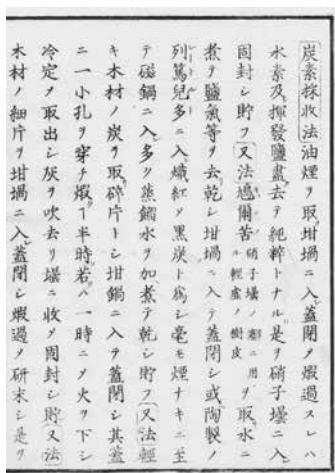 炭素採收法油煙ヲ取坩堝ニ入蓋閉ヲ煆過スレハ
水素及揮發鹽盡去テ純粹トナル是ヲ硝子壜ニ入
固封シ貯フ又法爾苦硝子壜ノ塞ニ用ル輕虚ノ樹皮ヲ取水ニ
煮テ鹽氣等ヲ去乾シ坩堝ニ入テ蓋閉シ或陶製ノ
列篤兒多ニ入熾紅シ黒炭ト爲シ毫モ煙ナキニ至
テ磁鍋ニ入多ク蒸餾水ヲ加煮テ乾シ貯フ又法輕
キ木材ノ炭ヲ取碎片トシ坩鍋ニ入テ蓋閉シ其蓋
ニ一小孔ヲ穿チ煆ヿ半時若ハ一時ニメ火ヲ下シ
冷定ヲ取出シ灰ヲ吹去リ壜ニ收メ固封シ貯又法
木材ノ細片ヲ坩堝ニ入蓋閉シ煆過ヲ研末シ是ヲ